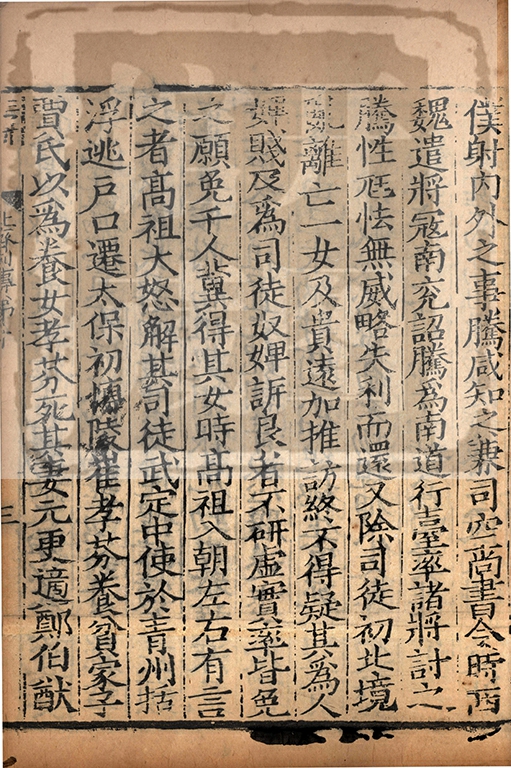 僕射內外之事騰咸知之兼司空尚書令時西
魏遣將寇南兖詔騰爲南道行臺率諸將討之
騰性尫怯無威略失利而還又除司徒初北境
亂離亡一女及貴遠加推訪終不得疑其爲人
婢賤及爲司徒奴婢訴良者不研虛實率皆免
之願免千人冀得其女時高祖入朝左右有言
之者高祖大怒解其司徒武定中使於青州括
浮逃戶口遷太保初博陵崔孝芬養貧家子
賈氏以爲養女孝芬死其妻元更適鄭伯猷
三